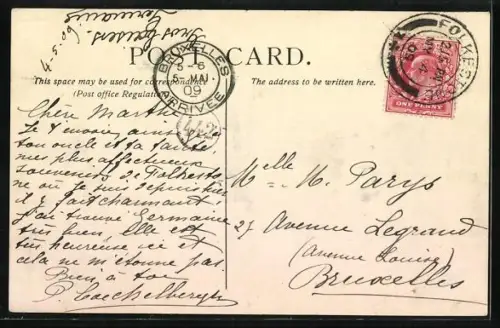 4-5-09
Germaine
POST CARD.
This space may be used for correspondence
(Post office Regulation)
The address to be written here.
BRUXELLES
5-6
5-MAI
09
ARRIVÉE
FOLKEST
ONE PENNY
Chère Marthe
Je t'envoie ainsi
ton oncle et ta tante
mes plus affectueux
souvenirs de Folkesto
ne où je suis depuis hier
il y fait charmant.
J'ai trouvé Germaine
très bien, elle est
très heureuse ici et
cela ne m'étonne pas.
Bien à toi
Melle M. Parys
27 Avenue Legrand
(Avenue Louise)
Bruxelles